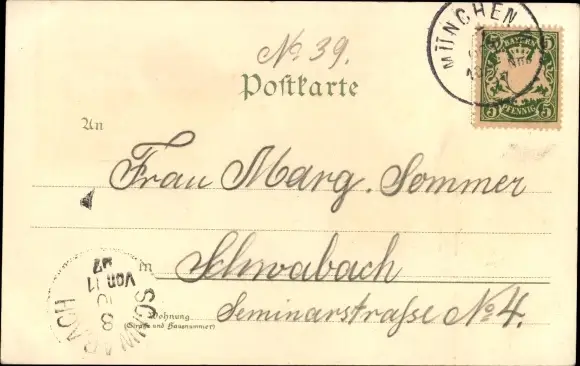 MÜNCHEN
5 BAYERN 5
5 PFENNIG 5
No 39.
Postkarte
An
Frau Marg. Sommer
in Schwabach
Wohnung
(Straße und Hausnummer)
Seminarstraße No 4.
SCHWABACH
8
VON 11